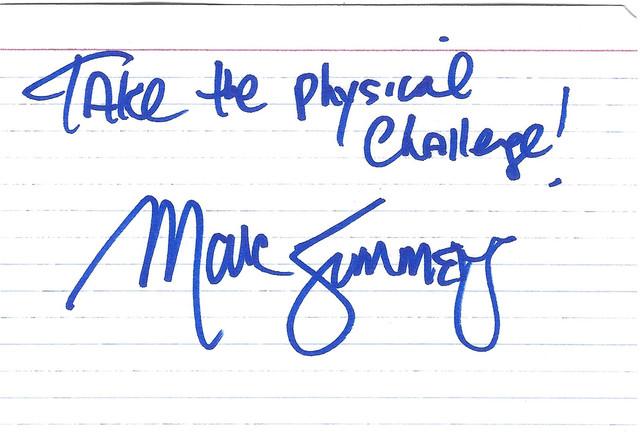 TAke the physical
Challenge!
Marc Summers